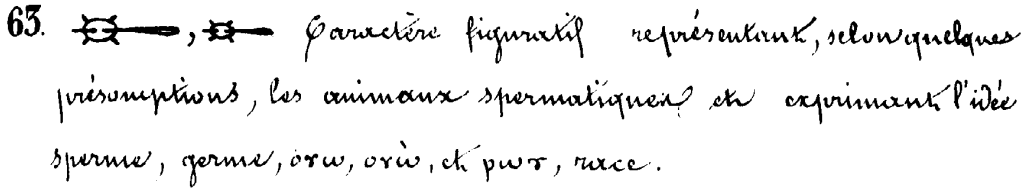 63. , Caractère figuratif représentant, selon quelques
présomptions, les animaux spermatiques et exprimant l'idée
sperme, germe, et race.